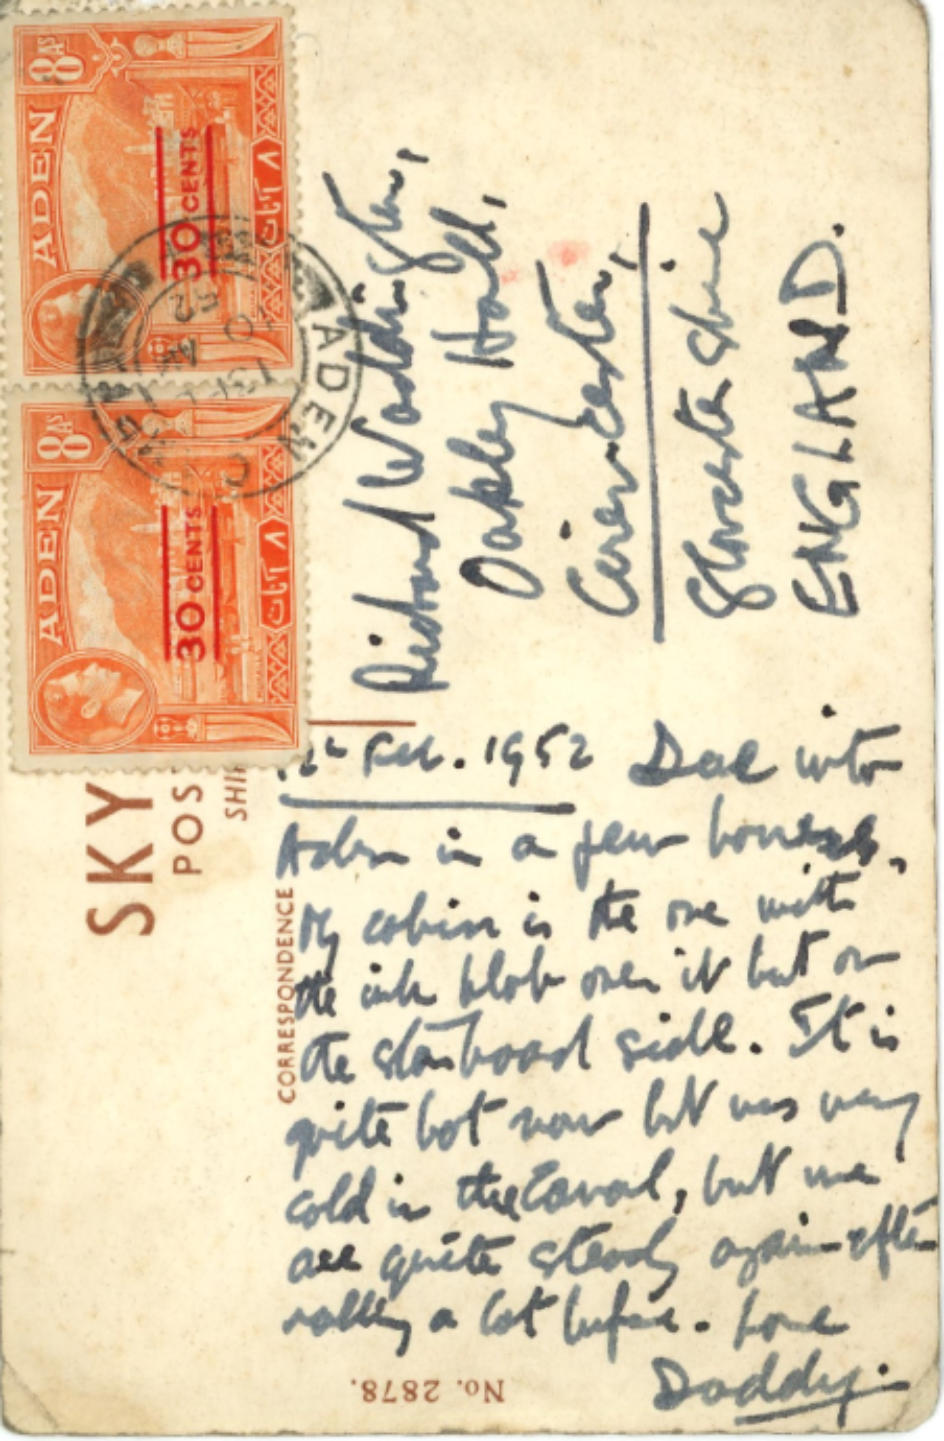 ADEN
8 AS
30 CENTS
٨ آنات
ADEN
8 AS
30 CENTS
٨ آنات
ADEN C
52
SKY
POS
SHI
CORRESPONDENCE
Richard Waddington,
Oakley Hall,
Cirencester,
Gloucestershire
ENGLAND.
12th Feb. 1952 Due into
Aden in a few hours,
My cabin is the one with
the ink blob over it but on
the starboard side. It is
quite hot now but was very
cold in the Canal, but we
are quite steady again after
rolling a lot before. Love
Daddy.
No. 2878.